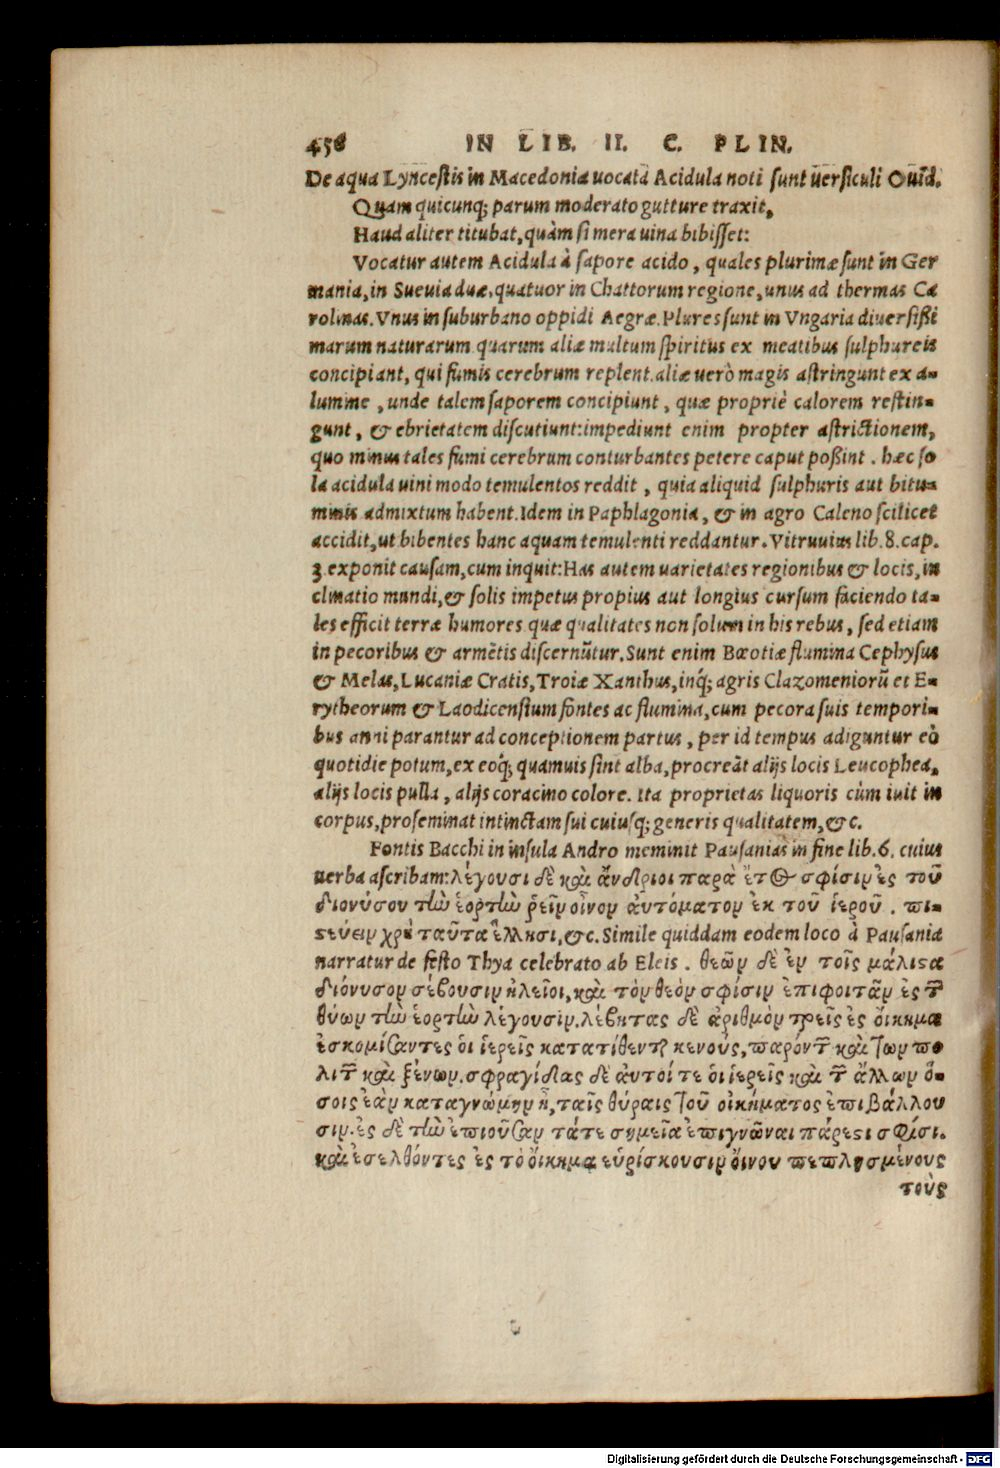 458 IN LIB. II. C. PLIN.
De aqua Lyncestis in Macedonia uocata Acidula noti sunt uersiculi Ouid.
Quam quicunq; parum moderato gutture traxit,
Haud aliter titubat, quàm si mera uina bibisset:
Vocatur autem Acidula à sapore acido, quales plurimæ sunt in Ger
mania, in Sueuia duæ, quatuor in Chattorum regione, unus ad thermas Ca
rolinas. Vnus in suburbano oppidi Aegræ. Plures sunt in Vngaria diuersißi
marum naturarum quarum aliæ multum spiritus ex meatibus sulphureis
concipiant, qui fumis cerebrum replent. aliæ uerò magis astringunt ex a-
lumine, unde talem saporem concipiunt, quæ propriè calorem restin-
gunt, & ebrietatem discutiunt: impediunt enim propter astrictionem,
quo minus tales fumi cerebrum conturbantes petere caput poßint. hæc so
la acidula uini modo temulentos reddit, quia aliquid sulphuris aut bitu-
minis admixtum habent. Idem in Paphlagonia, & in agro Caleno scilicet
accidit, ut bibentes hanc aquam temulenti reddantur. Vitruuius lib. 8. cap.
3 exponit causam, cum inquit: Has autem uarietates regionibus & locis, in
clinatio mundi, & solis impetus propius aut longius cursum faciendo ta-
les efficit terræ humores quæ qualitates non solum in his rebus, sed etiam
in pecoribus & armētis discernūtur. Sunt enim Bœotiæ flumina Cephysus
& Melas, Lucaniæ Cratis, Troiæ Xanthus, inq́; agris Clazomeniorū et E-
rytheorum & Laodicensium fontes ac flumina, cum pecora suis tempori-
bus anni parantur ad conceptionem partus, per id tempus adiguntur eò
quotidie potum, ex eoq́; quamuis sint alba, procreāt alijs locis Leucophea,
alijs locis pulla, alijs coracino colore. Ita proprietas liquoris cùm iuit in
corpus, proseminat intinctam sui cuiusq; generis qualitatem, &c.
Fontis Bacchi in insula Andro meminit Pausanias in fine lib. 6. cuius
uerba ascribam: λέγουσι δὲ καὶ ἄνδριοι παρὰ ἔτος σφίσιν ἐς τοῦ
διονύσου τὴν ἑορτὴν ῥεῖν οἶνον ἀυτόματον ἐκ τοῦ ἱεροῦ. πι-
στεύειν χρὴ ταῦτα ἕλλησι, &c. Simile quiddam eodem loco à Pausania
narratur de festo Thya celebrato ab Eleis. θεῶν δὲ ἐν τοῖς μάλιστα
διόνυσον σέβουσιν ἠλεῖοι, καὶ τὸν θεὸν σφίσιν ἐπιφοιτᾶν ἐς τ̃
θύων τὴν ἑορτὴν λέγουσιν. λέβητας δὲ ἀριθμὸν τρεῖς ἐς ὄικημα
ἐσκομίσαντες ὁι ἱερεῖς κατατίθενται κενοὺς, παρόντ̃ καὶ τῶν πο
λιτ̃ καὶ ξένων. σφραγίδας δὲ ἀυτοί τε ὁι ἱερεῖς καὶ τ̃ ἄλλων ὁ-
σοις ἐὰν καταγνώμην ᾖ, ταῖς θύραις τοῦ οἰκήματος ἐπιβάλλου
σιν. ἐς δὲ τὴν ἐπιοῦσαν τάτε σημεῖα ἐπιγνῶναι πάρεστι σφίσι.
καὶ ἐσελθόντες ἐς τὸ ὄικημα εὑρίσκουσιν ὄινου πεπλησμένους
τοὺς
Digitalisierung gefördert durch die Deutsche Forschungsgemeinschaft - DFG